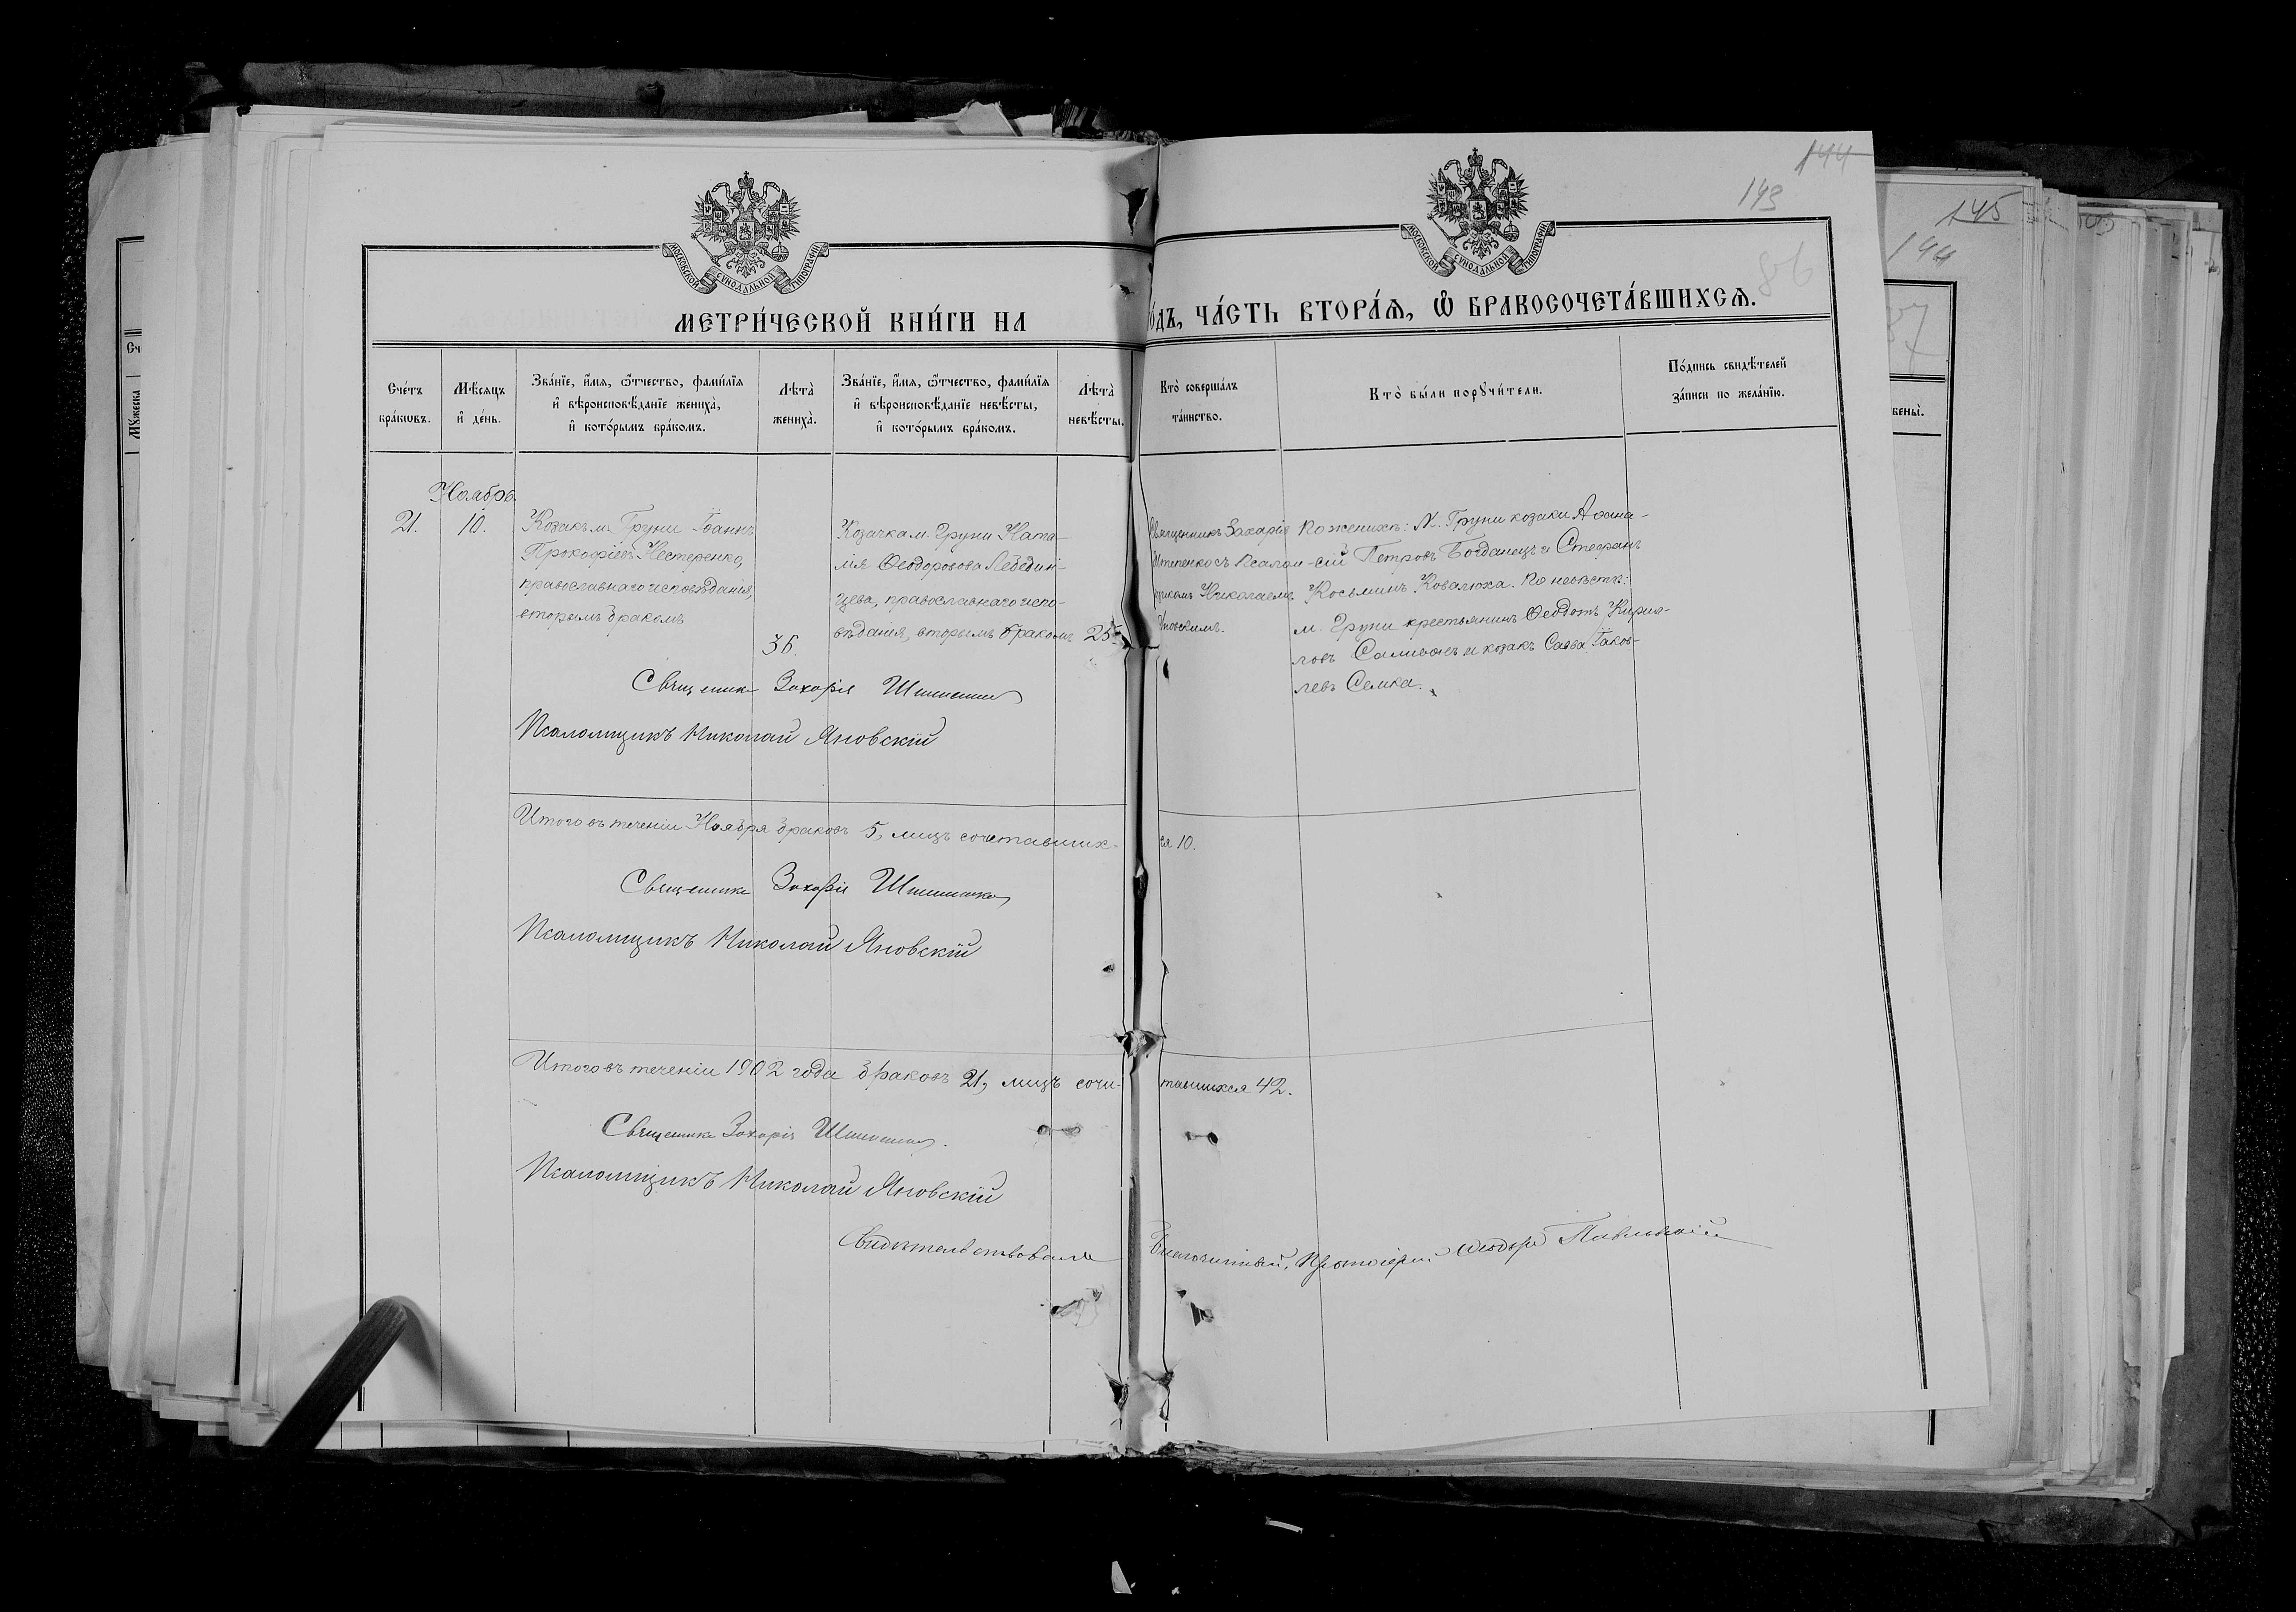 144
143
86
145
144
37
МОСКОВСКОЙ СѴНОДАЛЬНОЙ ТИПОГРАФІИ
МОСКОВСКОЙ СѴНОДАЛЬНОЙ ТИПОГРАФІИ
МЕТРИ́ЧЕСКОЙ КНИ́ГИ НА
О́ДЪ, ЧА́СТЬ ВТОРА́Ѧ, Ѽ БРАКОСОЧЕТА́ВШИХСѦ.
Сче́тъ бра́кѡвъ.
Мѣ́сѧцъ и҆ де́нь.
Зва́нїе, и҆́мѧ, ѻ҆́тчество, фами́лїѧ
и҆ вѣроисповѣ́данїе жениха̀,
и҆ кото́рымъ бра́комъ.
Лѣта̀ жениха̀.
Зва́нїе, и҆́мѧ, ѻ҆́тчество, фами́лїѧ
и҆ вѣроисповѣ́данїе невѣ́сты,
и҆ кото́рымъ бра́комъ.
Лѣта̀ невѣ́сты.
Кто̀ соверша́лъ та́инство.
Кто̀ бы́ли порꙋчи́тели.
По́дпись свидѣ́телей
за́писи по жела́нїю.
Ноябрь.
21.
10.
Козакъ м. Груни Іоаннъ
Прокофіевъ Нестеренко,
православнаго исповѣданія,
вторымъ бракомъ
36.
Козачка м. Груни Ната-
лія Ѳеодорова Лебедин-
цева, православнаго испо-
вѣданія, вторымъ бракомъ
25.
Священникъ Захарія
съ Псалом-
щикомъ Николаемъ
Яновскимъ.
По женихѣ: М. Груни козаки Аѳана-
сій Петровъ Богданецъ и Стефанъ
Косьминъ Ковалюха. По невѣстѣ:
м. Груни крестьянинъ Ѳеодотъ Кирил-
ловъ и козакъ Савва Іаков-
левъ Семка.
Священникъ Захарія
Псаломщикъ Николай Яновскій
Итого въ теченіи Ноября браковъ 5, лицъ сочетавших-
ся 10.
Священникъ Захарія
Псаломщикъ Николай Яновскій
Итого въ теченіи 1902 года браковъ 21, лицъ сочи-
тавшихся 42.
Священникъ Захарія
Псаломщикъ Николай Яновскій
Свидѣтельствовалъ
Благочинный, Протоіерей Ѳеодоръ